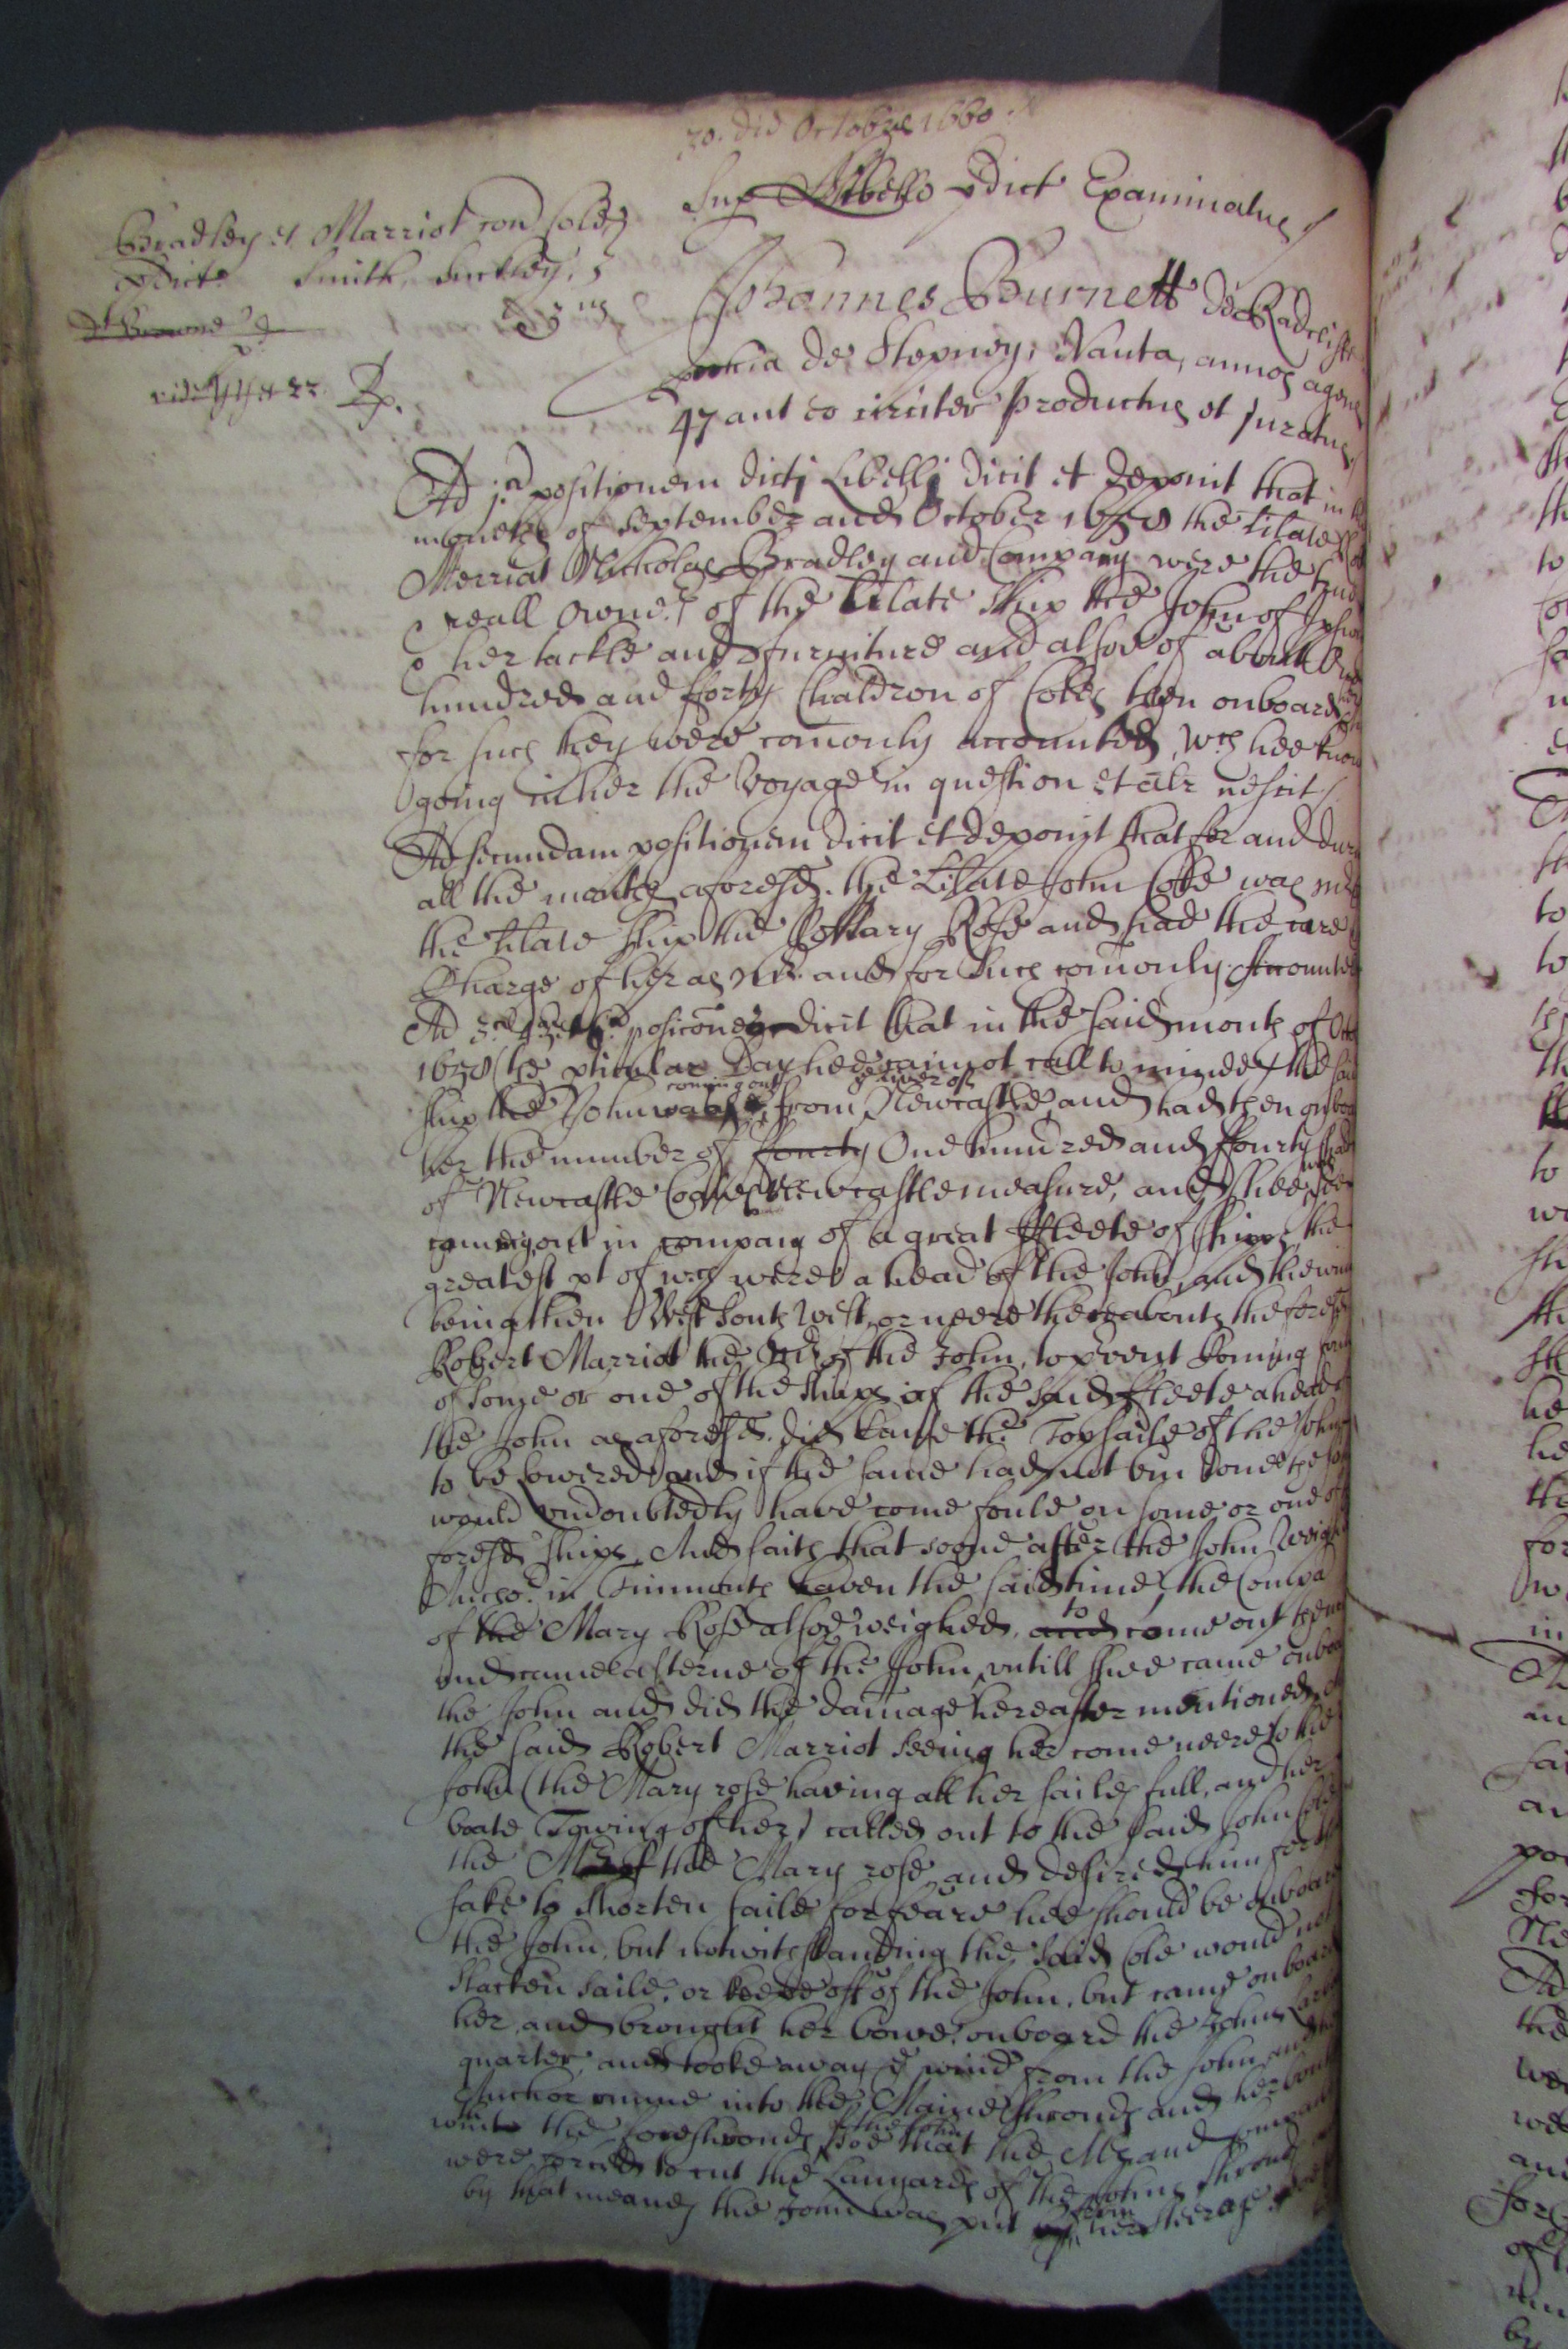 30. die Octobris 1660.
Sup Libello pdict Examinatus
Bradley et Marriot con Cole
pdict. Smith, Suckley,
3us
Rp.
Johannes Burnett de Radcliffe
pochia de Stepney, Nauta, annos agens
47 aut eo circiter productus et juratus
Ad jd positionem dictj Libellj dicit et deponit that in the
moneths of September and October 1658 the libelate
Merriat Nicholas Bradley and Company were the true
reall Owners of the libelate Ship the John of Ipsw
& her tackle and furniture and alsoe of about One
hundred and fforty Chaldron of Coles then onboard
for such they were comonly accounted, wch hee know
going in her the Voyage in question et alr nescit
Ad secundam positionem dicit et deponit that for and dur
all the months aforesd. the Libelate John Cole was mr
the libelate ship the Mary Rose and had the care
Charge of her as Mr. and for such comonly Accounted
Ad 3. 4. posicones dicit that in the said month of Oct
1658 (the pticular Day hee cannot call to minde) the said
coming out ye river of
ship the John was from Newcastle and had then onboa
her the number of fourty One hundred and ffourty Chald
of Newcastle Coales Newcastle measure, and shee
coming out in company of a great ffleete of shipps, the
greatest pt of wch were a head of the John and the win
being then West South West, or neere thereabouts, the foresd
Robert Marriot the Mr of the John, to prvent coming foul
of some or one of the ships of the said ffleete ahead
the John as aforesd. did cause the Topsaile of the John
to be lowered and if the same had not bin done the John
would undoubtedly have come foule on some or one of
foresd ships, And saith that soone after the John weighed
Anchor in Tinmouth haven the said time, the Compa
to
of the Mary Rose alsoe weighed, and come out then
and came asterne of the John, untill shee came onboa
the John and did the damage hereafter mentioned,
the said Robert Marriot seeing her come neere to the
John (the Mary rose having all her sailes full, and her
boate Towing of her) called out to the said John Cole
the Mr of the Mary rose and desired him for
sake to shorten saile for feare hee should be onboard
the John, but notwithstanding the said Cole would not
slacken saile, or keepe off of the John, but came onboard
her, and brought her bowe, onboard the Johns
quarter, and tooke away ye wind from the John and
Anchor runne into the Maine Shrouds and her
the John
the foreshrouds, soe that the Mr and company
were forced to cut the Lanyards of the Johns shrouds
by that meanes the John was put her steerage